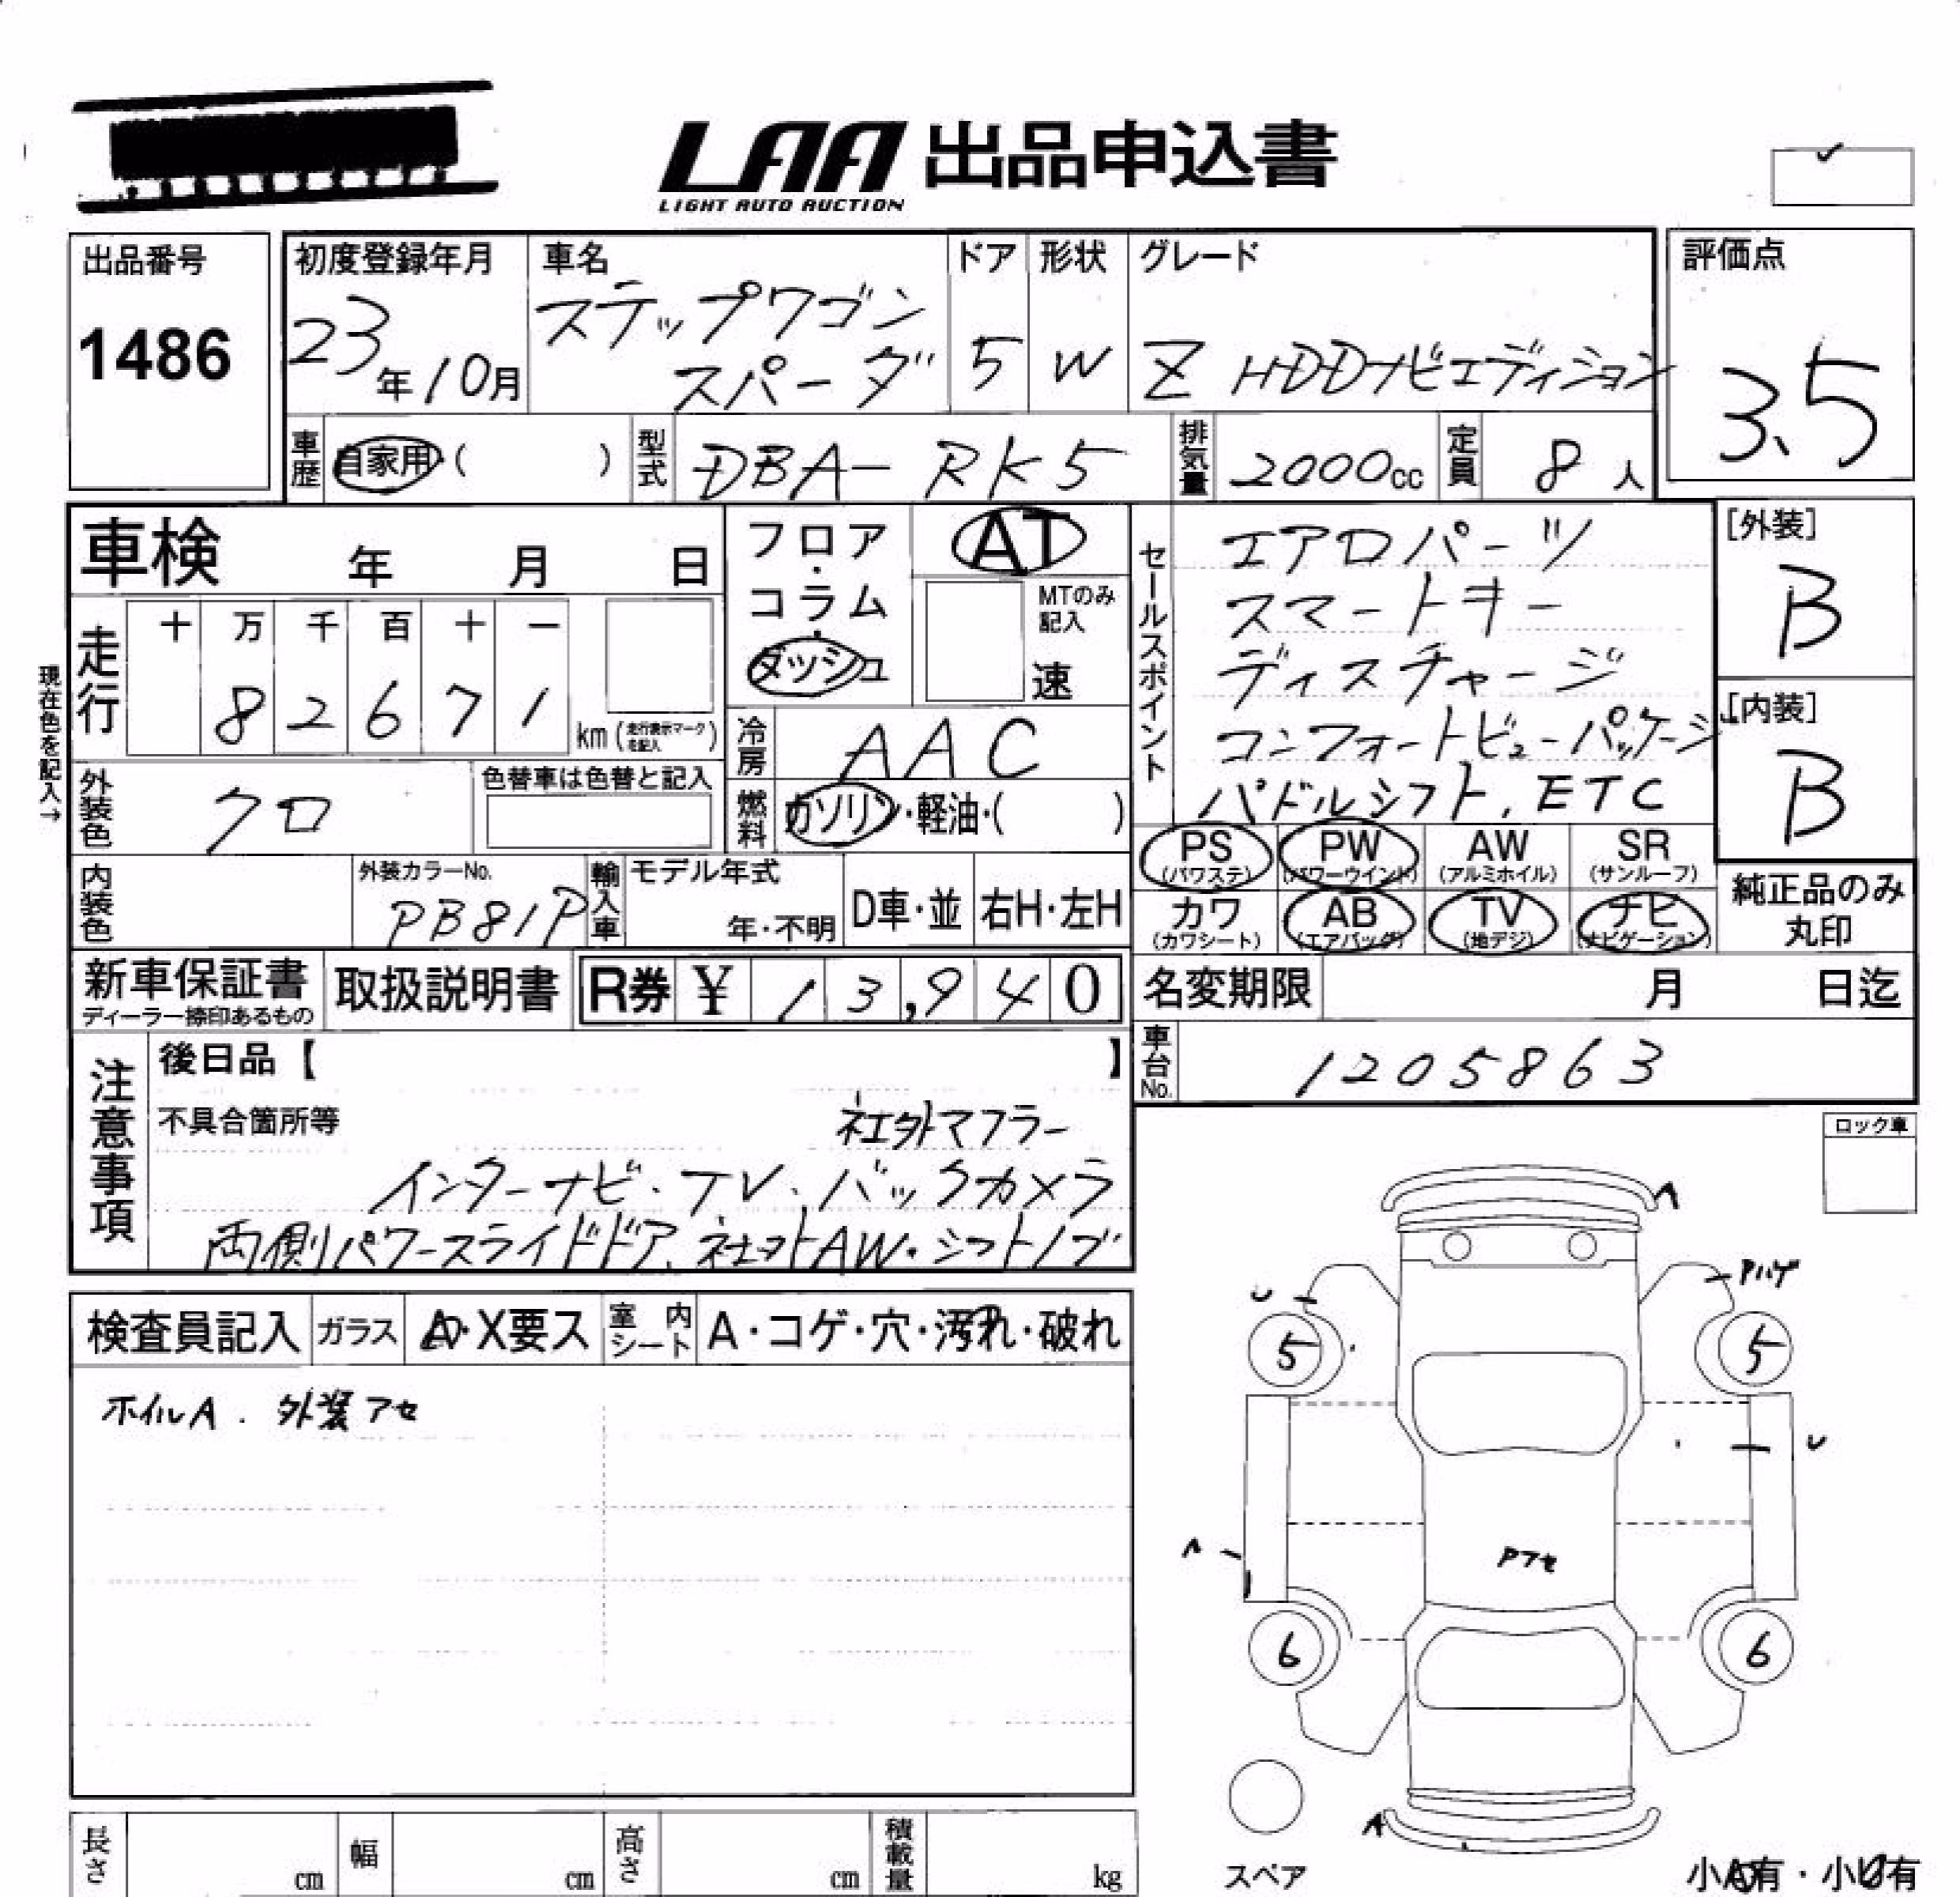 LAA 出品申込書
LIGHT AUTO AUCTION
出品番号
1486
初度登録年月
23年10月
車名
ステップワゴン
スパーダ
ドア
5
形状
W
グレード
Z HDDナビエディション
評価点
3.5
車歴
自家用・( )
型式
DBA-RK5
排気量
2000cc
定員
8人
車検 年 月 日
フロア・
コラム・
ダッシュ
AT
MTのみ
記入
速
セールスポイント
エアロパーツ
スマートキー
ディスチャージ
コンフォートビューパッケージ
パドルシフト, ETC
[外装]
B
[内装]
B
現在色を記入→
走行
十 万 千 百 十 一
8 2 6 7 1
km (走行表示マークを記入)
冷房
AAC
外装色
クロ
色替車は色替と記入
燃料
ガソリン・軽油・( )
PS
(パワステ)
PW
(パワーウインド)
AW
(アルミホイル)
SR
(サンルーフ)
内装色
外装カラーNo.
PB81P
輸入車
モデル年式
年・不明
D車・並
右H・左H
カワ
(カワシート)
AB
(エアバッグ)
TV
(地デジ)
ナビ
(ナビゲーション)
純正品のみ
丸印
新車保証書
ディーラー捺印あるもの
取扱説明書
R券 ¥ 13,940
名変期限 月 日迄
車台No.
1205863
注意事項
後日品【 】
不具合箇所等
社外マフラー
インターナビ・TV・バックカメラ
両側パワースライドドア、社外AW・シフトノブ
ロック車
検査員記入
ガラス
A・X要ス
室内シート
A・コゲ・穴・汚れ・破れ
ホイルA. 外装アセ
A
Pハゲ
U
5
5
U
A
Pアセ
6
6
A
スペア
小A有・小U有
長さ cm
幅 cm
高さ cm
積載量 kg